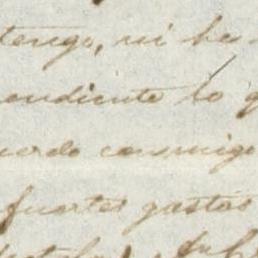 tengo, ni ha
endiente lo q
uerdo conmigo
fuertes gastos